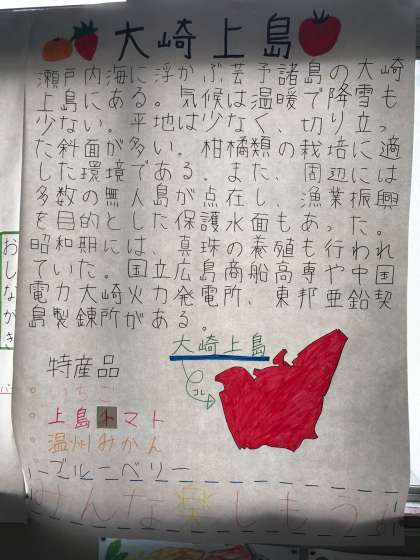 大崎上島
瀬戸内海に浮かぶ芸予諸島の大崎
上島にある。気候は温暖で降雪も
少ない。平地は少なく、切り立っ
た斜面が多い。柑橘類の栽培に適
した環境である。また、周辺には
多数の無人島が点在し、漁業振興
を目的とした保護水面もあった。
昭和期には、真珠の養殖も行われ
ていた。国立広島商船高専や中国
電力大崎火力発電所、東邦亜鉛契
島製錬所がある。
大崎上島
コレ
特産品
いちご
上島トマト
温州みかん
ブルーベリー
けんな楽しもうみ
おしながき